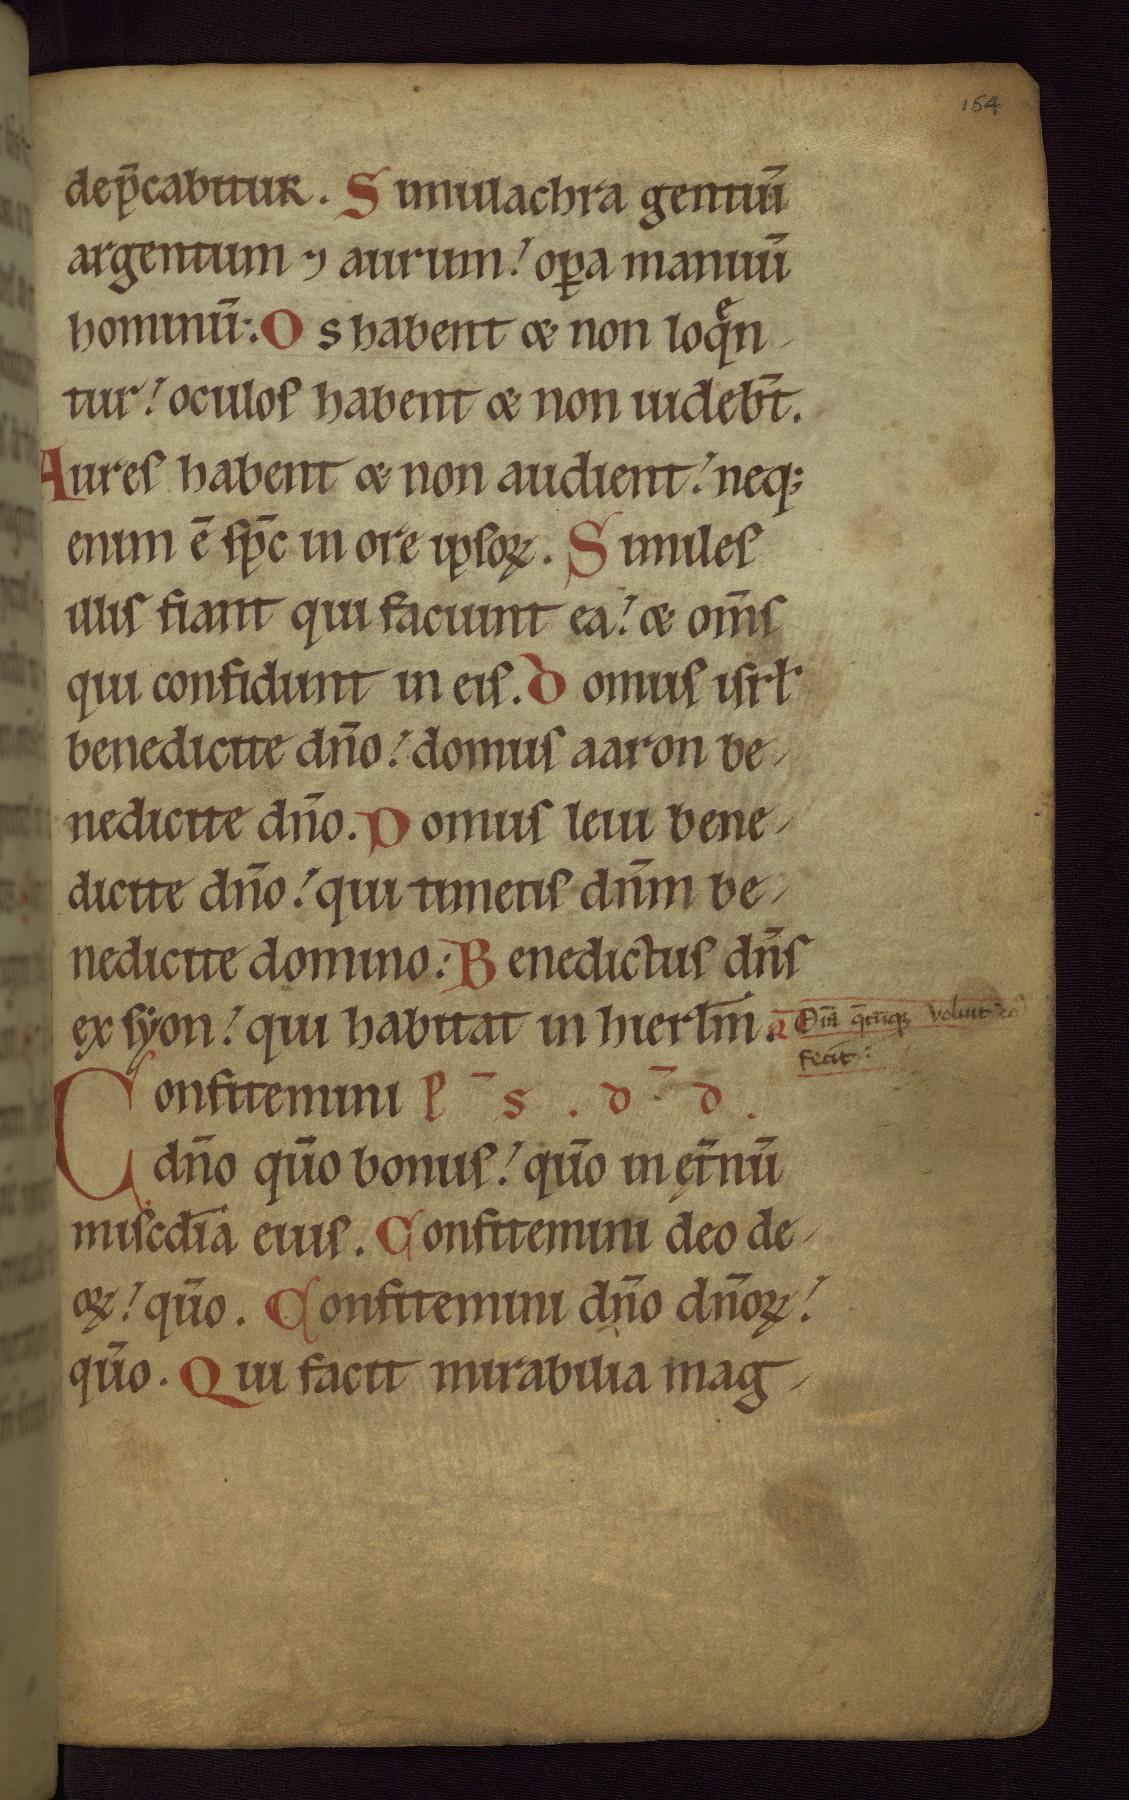 154
dep̄cabitur. Simulachra gentiū
argentum ⁊ aurum! oꝑa manuū
hominū: Os habent & non loqͤn-
tur! oculos habent & non uideb̄t.
Aures habent & non audient! neq;
enim ē sp̄c in ore ipsoꝝ. Similes
illis fiant qui faciunt ea! & om̄s
qui confidunt in eis. Domus isrl'
benedicite dn̄o! domus aaron be-
nedicite dn̄o. Domus leui bene-
dicite dn̄o! qui timetis dn̄m be-
nedicite domino: Benedictus dn̄s
ex syon! qui habitat in hierl̄m.
Om̄a q̄cūq; voluit
fecit:
Confitemini p̄ s . d̄ d .
dn̄o qūo bonus! qūo in et̄nū
misc̄dia eius. Confitemini deo de-
oꝝ! qūo. Confitemini dn̄o dn̄oꝝ!
qūo. Qui facit mirabilia mag-